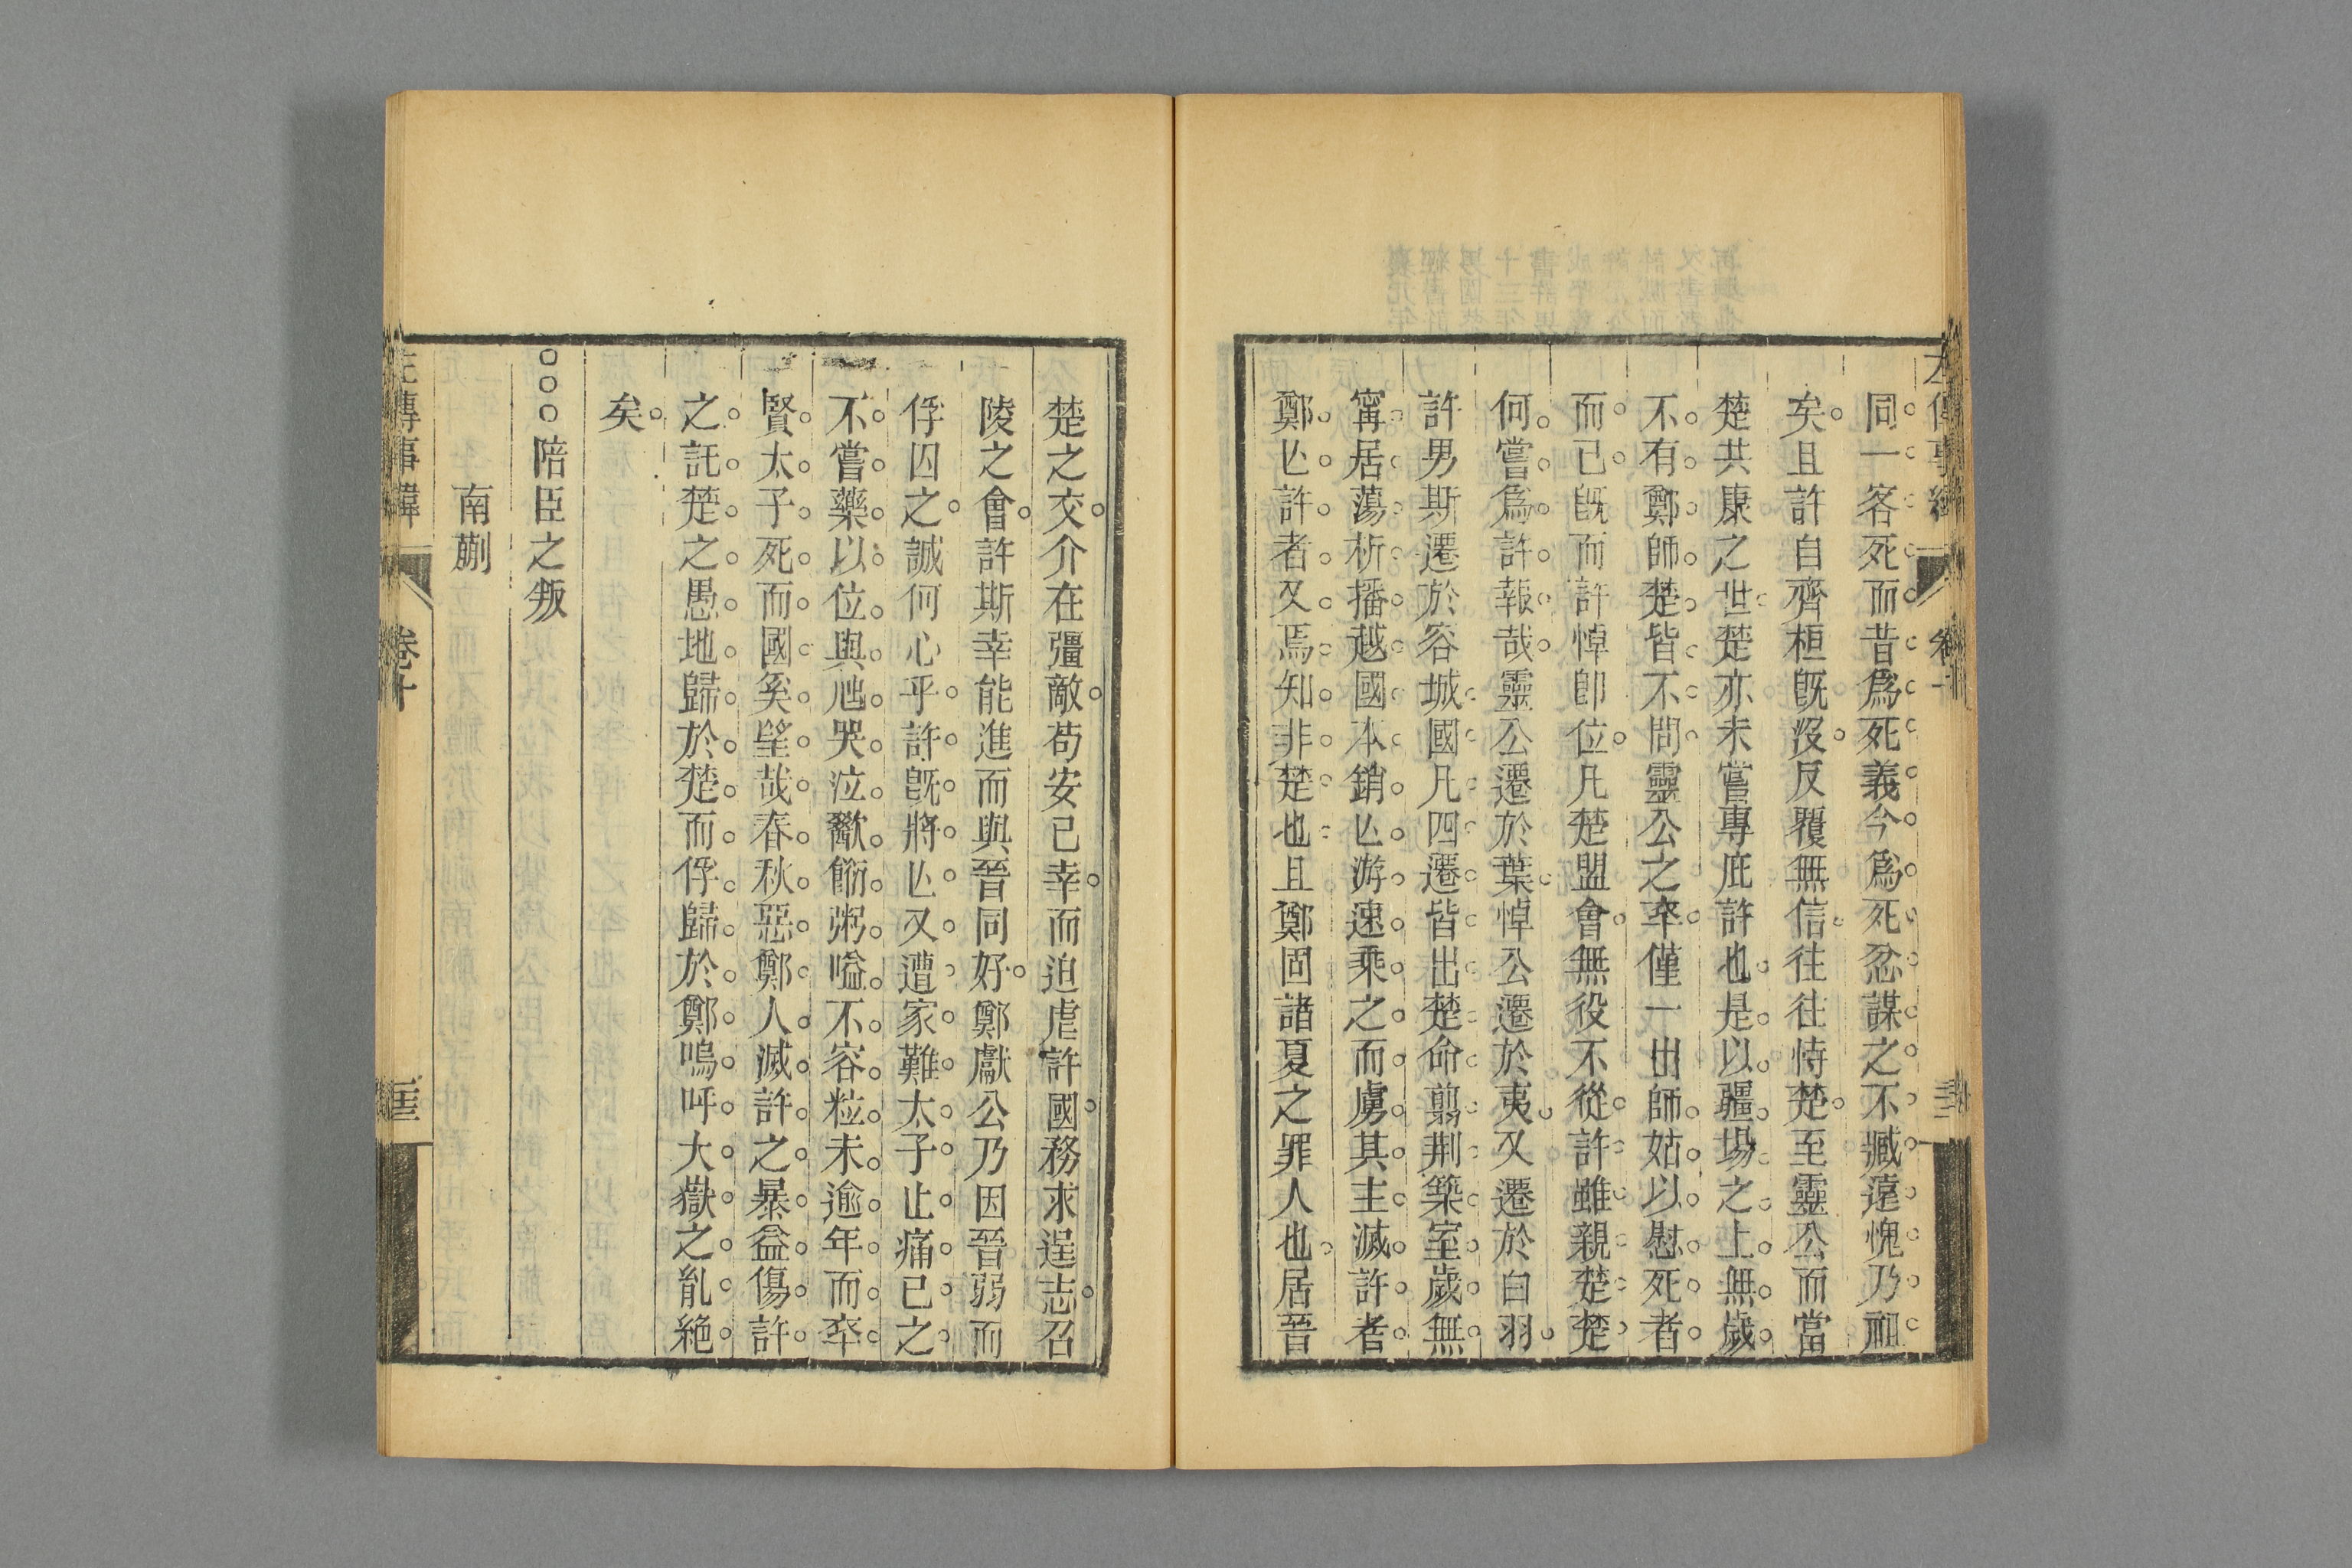 同一客死而昔爲死義今爲死忿謀之不臧遠愧乃祖
矣且許自齊桓旣沒反覆無信往往恃楚至靈公而當
楚共康之世楚亦未嘗專庇許也是以疆埸之上無歲
不有鄭師楚皆不問靈公之卒僅一出師姑以慰死者
而已旣而許悼卽位凡楚盟會無役不從許雖親楚楚
何嘗爲許報哉靈公遷於葉悼公遷於夷又遷於白羽
許男斯遷於容城國凡四遷皆出楚命翦荆築室歲無
寗居蕩析播越國本銷亾游速乘之而虜其主滅許者
鄭亾許者又焉知非楚也且鄭固諸夏之罪人也居晉
楚之交介在彊敵苟安已幸而迫虐許國務求逞志召
陵之會許斯幸能進而與晉同好鄭獻公乃因晉弱而
俘囚之誠何心乎許旣將亾又遭家難太子止痛已之
不嘗藥以位與虺哭泣歠飾粥嗌不容粒未逾年而卒
賢太子死而國矣望哉春秋惡鄭人滅許之暴益傷許
之託楚之愚地歸於楚而俘歸於鄭嗚呼大嶽之亂絶
矣
○○○陪臣之叛
南蒯
左傳事緯
卷十